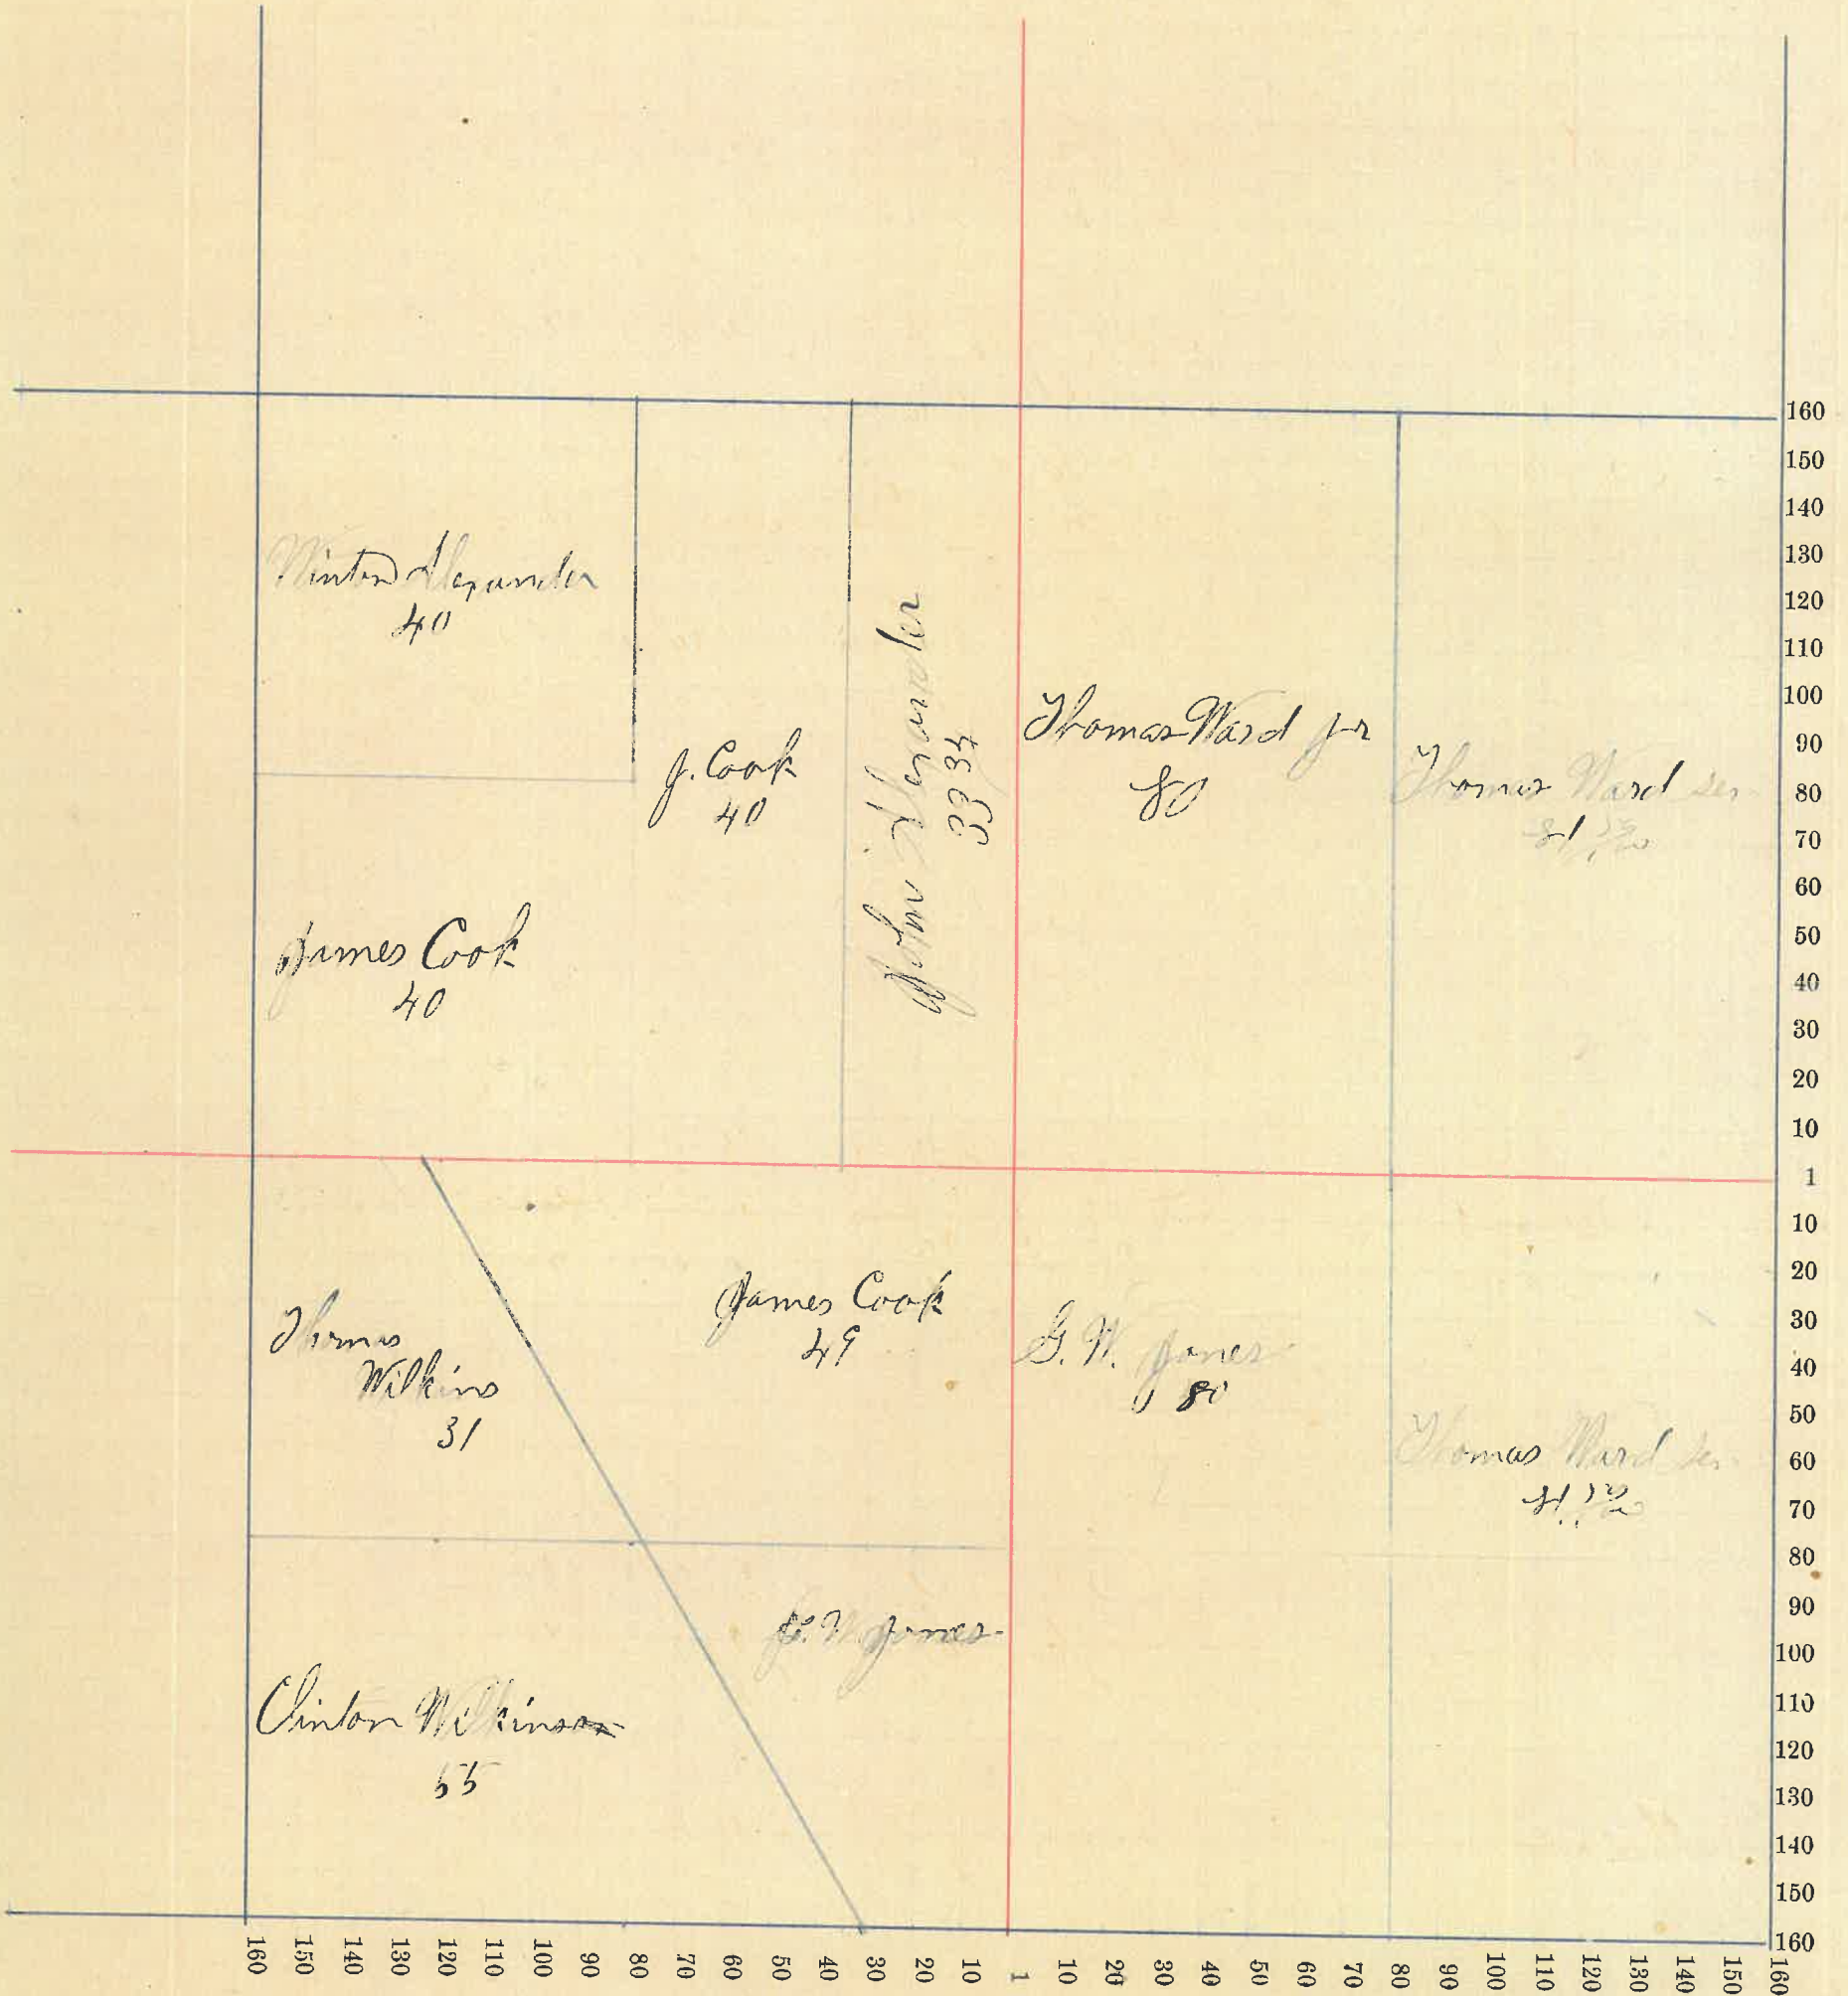 Winton Alexander
40
J. Cook
40
John Alexander
33 34
Thomas Ward jr
80
Thomas Ward ser
81
James Cook
40
Thomas
Wilkins
31
James Cook
49
G. W. Jones
80
Thomas Ward ser
81
G. W Jones
Clinton Wilkinson
55
160
150
140
130
120
110
100
90
80
70
60
50
40
30
20
10
1
10
20
30
40
50
60
70
80
90
100
110
120
130
140
150
160
160 150 140 130 120 110 100 90 80 70 60 50 40 30 20 10 1 10 20 30 40 50 60 70 80 90 100 110 120 130 140 150 160